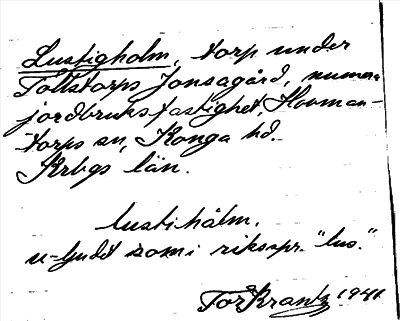 Lustigholm, torp under
Tollstorps Jonsagård, numera
jordbruksfastighet, Hovman-
torps sn, Konga hd.
Krbgs län.
lustihålm.
u-ljudet som i rikspr. "lus."
Tor Krantz 1941